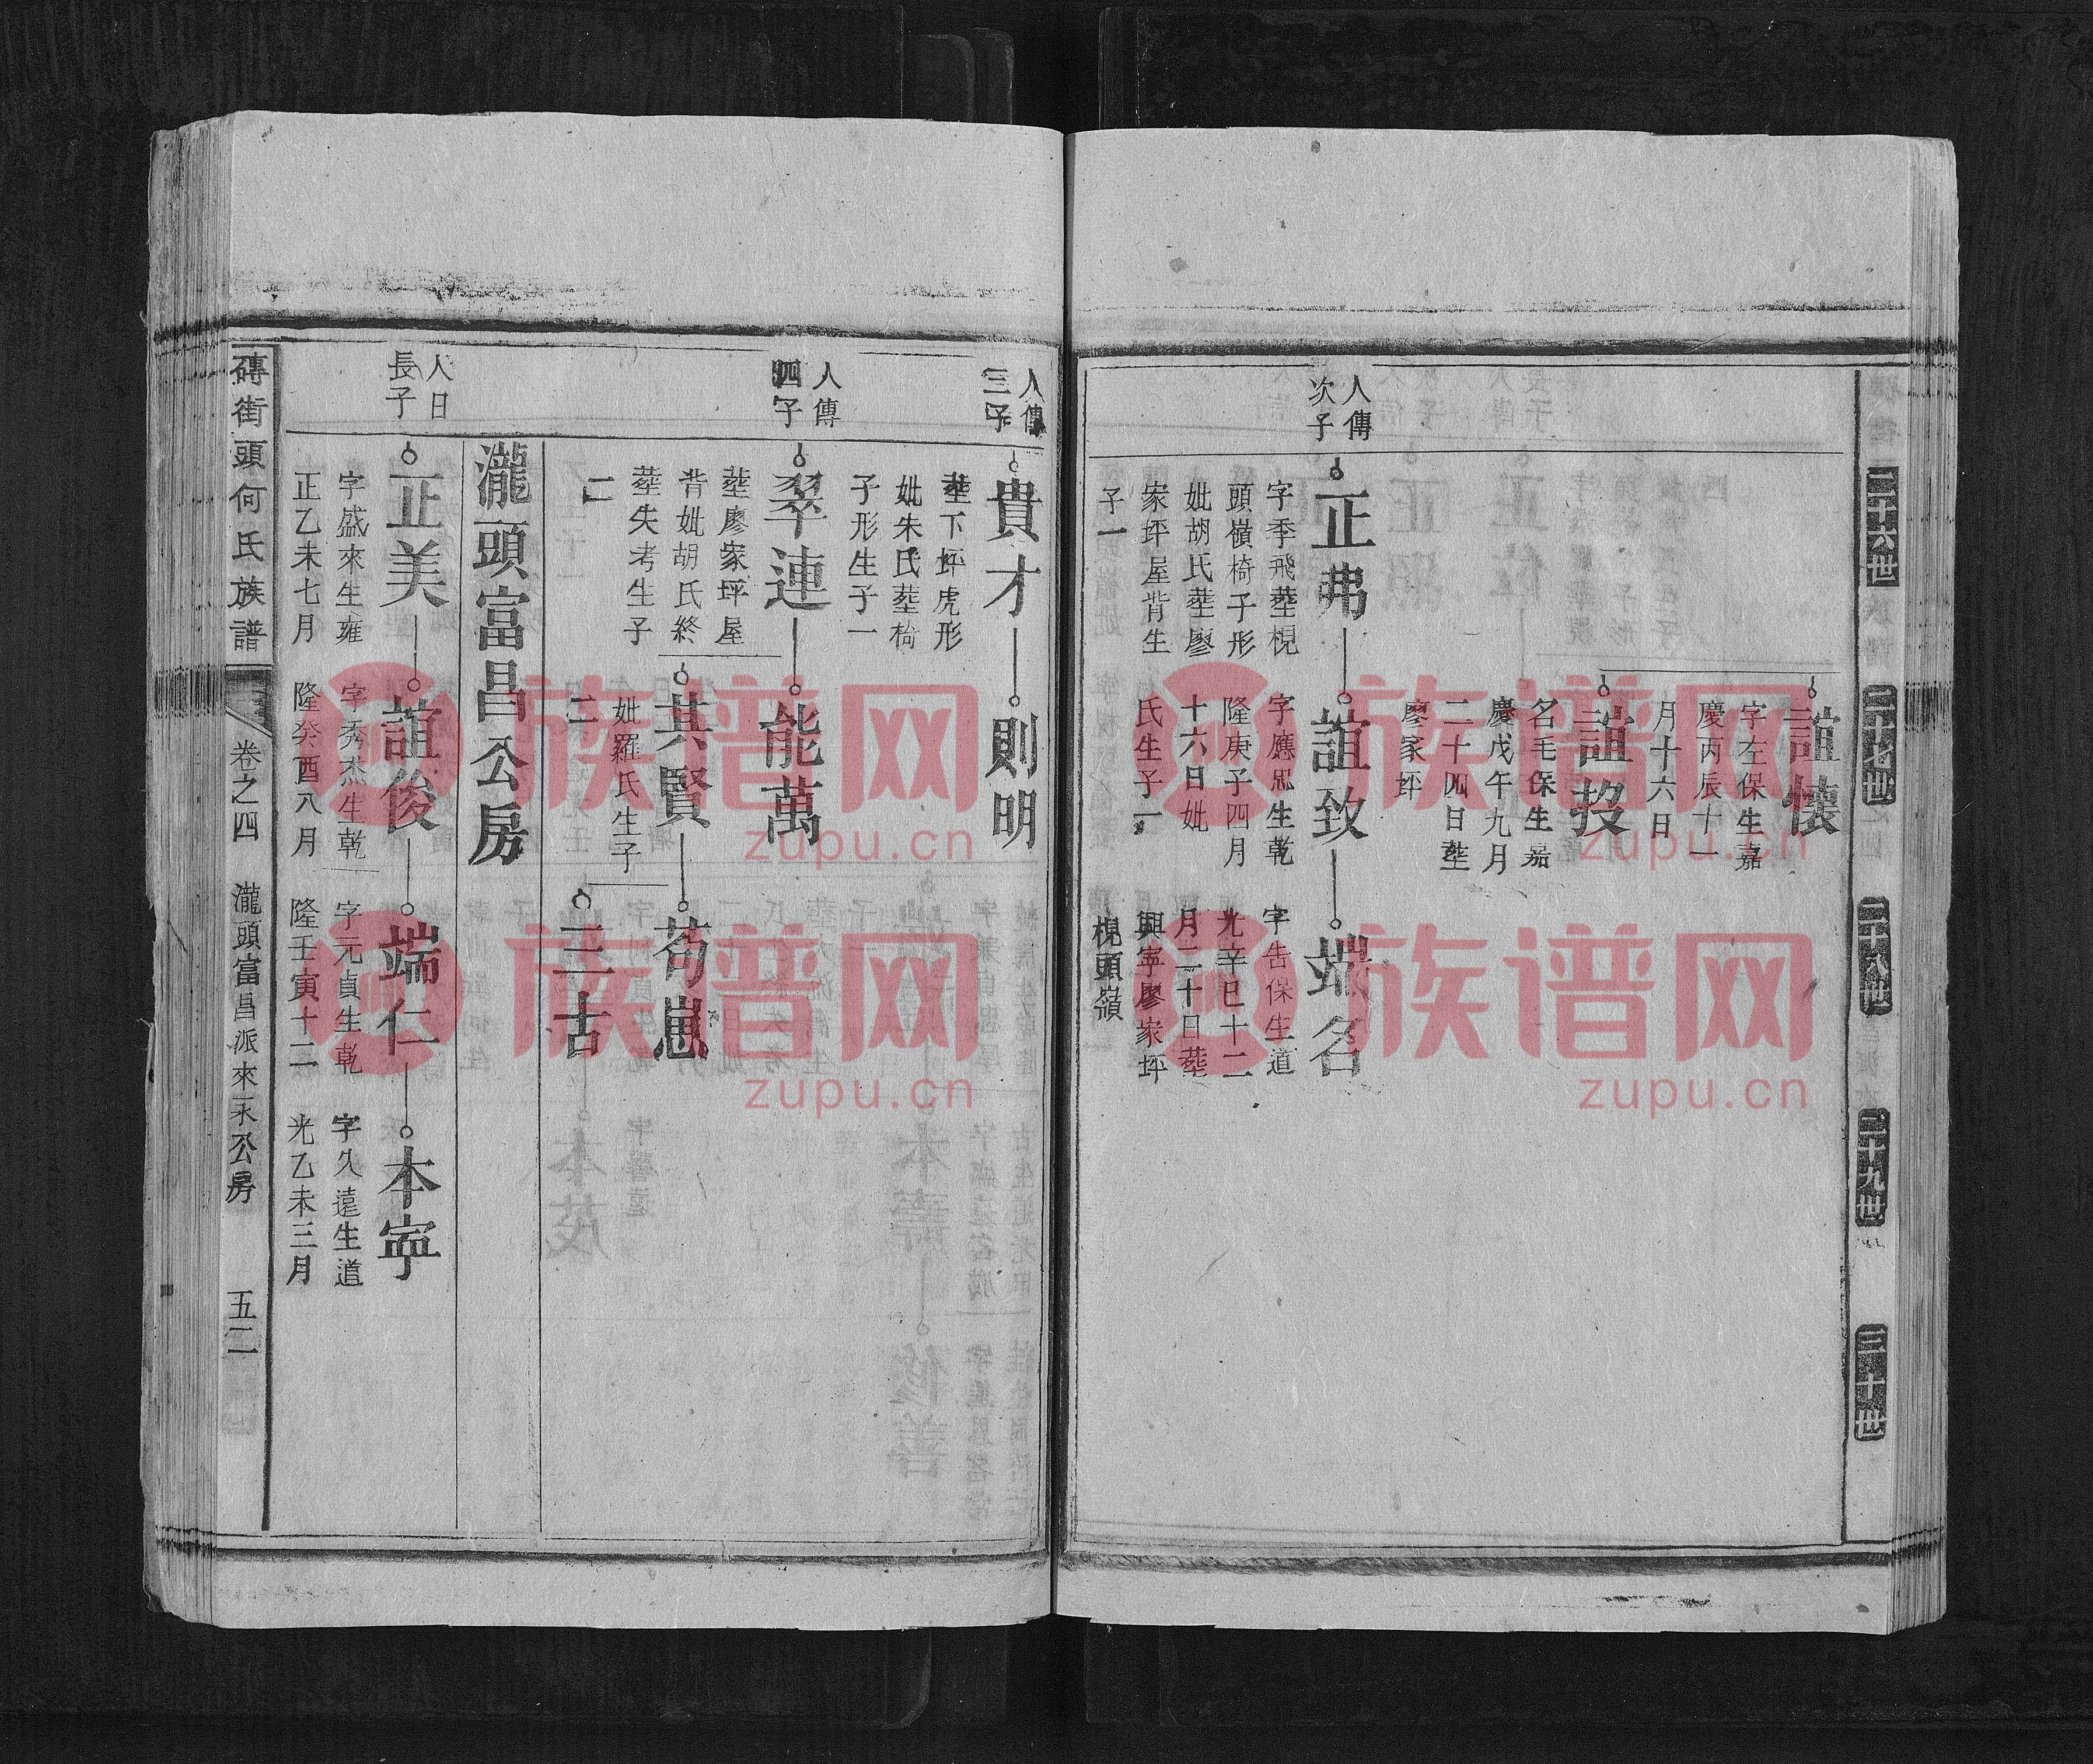 二十六世
二十七世
二十八世
二十九世
三十世
誼懷
字左保生嘉
慶丙辰十一
月十六日
誼投
名毛保生嘉
慶戊午九月
二十四日塟
廖家坪
人傳
次子
正弗
字季飛塟梘
頭嶺椅子形
妣胡氏塟廖
家坪屋背生
子一
誼致
字應忠生乾
隆庚子四月
十六日妣
氏生子一
端名
字告保生道
光辛巳十二
月二十日塟
興寧廖家坪
梘頭嶺
人傳
三子
貴才
塟下坪虎形
妣朱氏塟椅
子形生子一
則明
人傳
四子
翠連
塟廖家坪屋
背妣胡氏終
塟失考生子
二
能萬
共賢
妣羅氏生子
二
苟崽
二古
瀧頭富昌公房
人日
長子
正美
字盛來生雍
正乙未七月
誼俊
字秀杰生乾
隆癸酉八月
端仁
字元貞生乾
隆壬寅十二
本寧
字久遠生道
光乙未三月
磚街頭何氏族譜
卷之四
瀧頭富昌派來永公房
五二
族谱网
zupu.cn
族谱网
zupu.cn
族谱网
zupu.cn
族谱网
zupu.cn